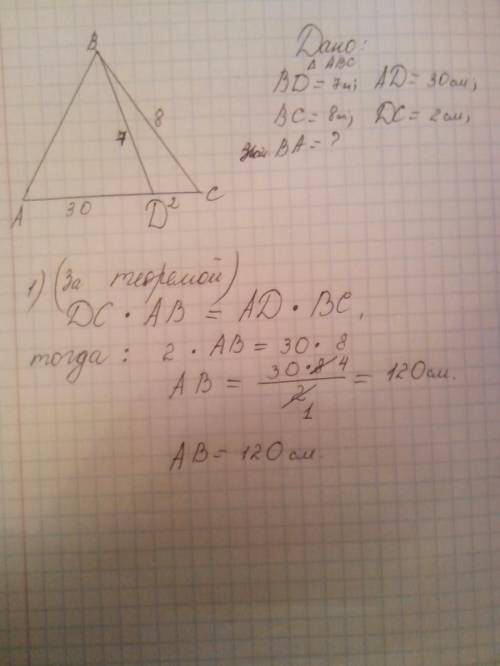 Дано:
Δ ABC
BD = 7см; AD = 30см,
BC = 8см, DC = 2см,
BA = ?
B
8
7
A 30 D 2 C
1) (За теоремой)
DC · AB = AD · BC,
тогда: 2 · AB = 30 · 8
AB = 30·8 4 / 2 1 = 120 см.
AB = 120 см.